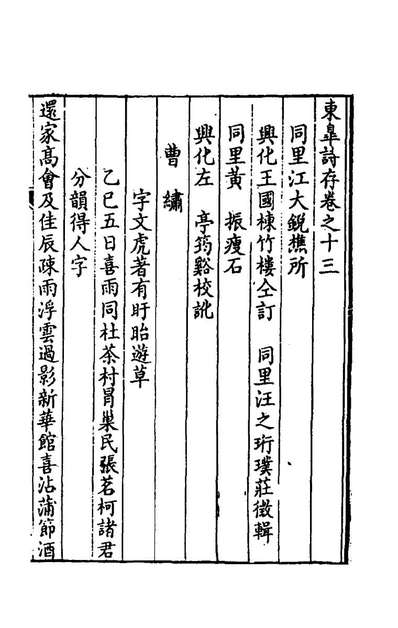 東臯詩存卷之十三
同里江大銳樵所
興化王國棟竹樓仝訂　同里汪之珩璞莊徵輯
同里黃　振瘦石
興化左　亭筠谿校訛
曹　繡
字文虎著有盱眙遊草
乙巳五日喜雨同杜茶村冒巢民張茗柯諸君
分韻得人字
還家高會及佳辰疎雨浮雲過影新華館喜沾蒲節酒